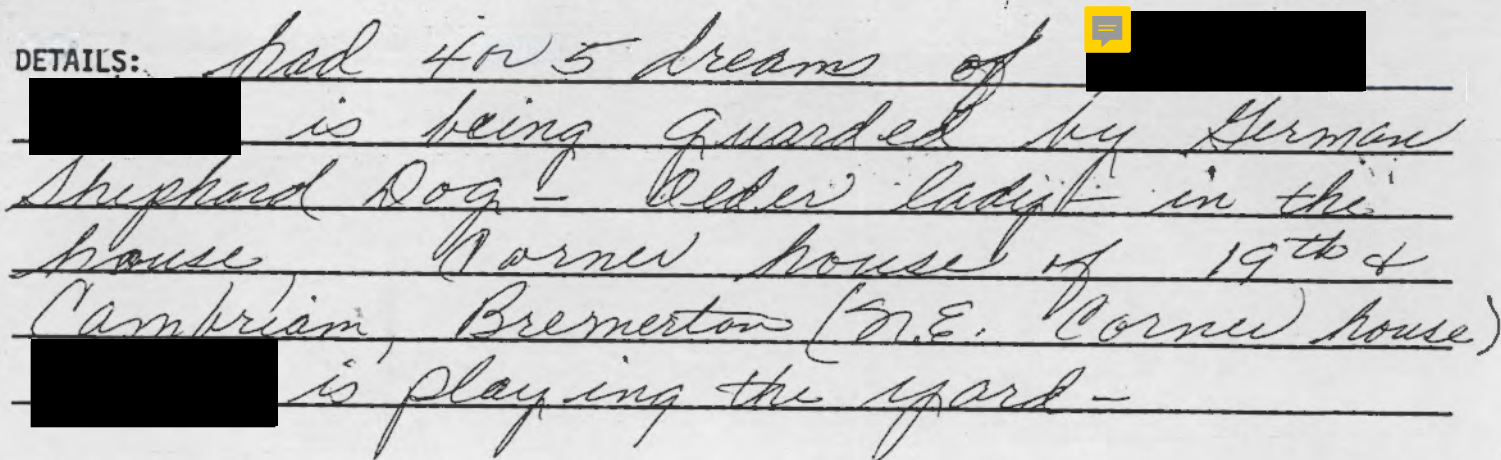 DETAILS: had 4 or 5 dreams of
is being guarded by German
Shephard Dog - Older lady - in the
house, Corner house of 19th &
Cambriam, Bremerton (N.E. Corner house)
is playing the yard -